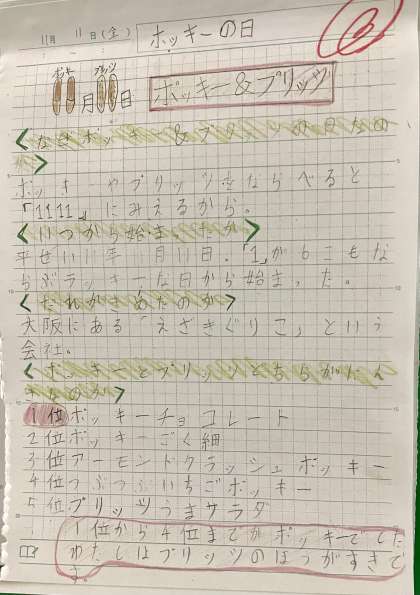 11月 11日(金) ポッキーの日
ポッキー プリッツ
11月11日 ポッキー&プリッツ
<なぜポッキー&プリッツの日なの
か>
ポッキーやプリッツをならべると
「1111」にみえるから。
<いつから始まったか>
平せい11年11月11日。「1」が6こもな
らぶラッキーな日から始まった。
<だれがきめたのか>
大阪にある「えざきぐりこ」という
会社。
<ポッキーとプリッツどちらが
1位ポッキーチョコレート
2位ポッキーごく細
3位アーモンドクラッシュポッキー
4位つぶつぶいちごポッキー
5位プリッツうまサラダ
1位から4位までがポッキーでした
わたしはプリッツのほうがすきで
す。